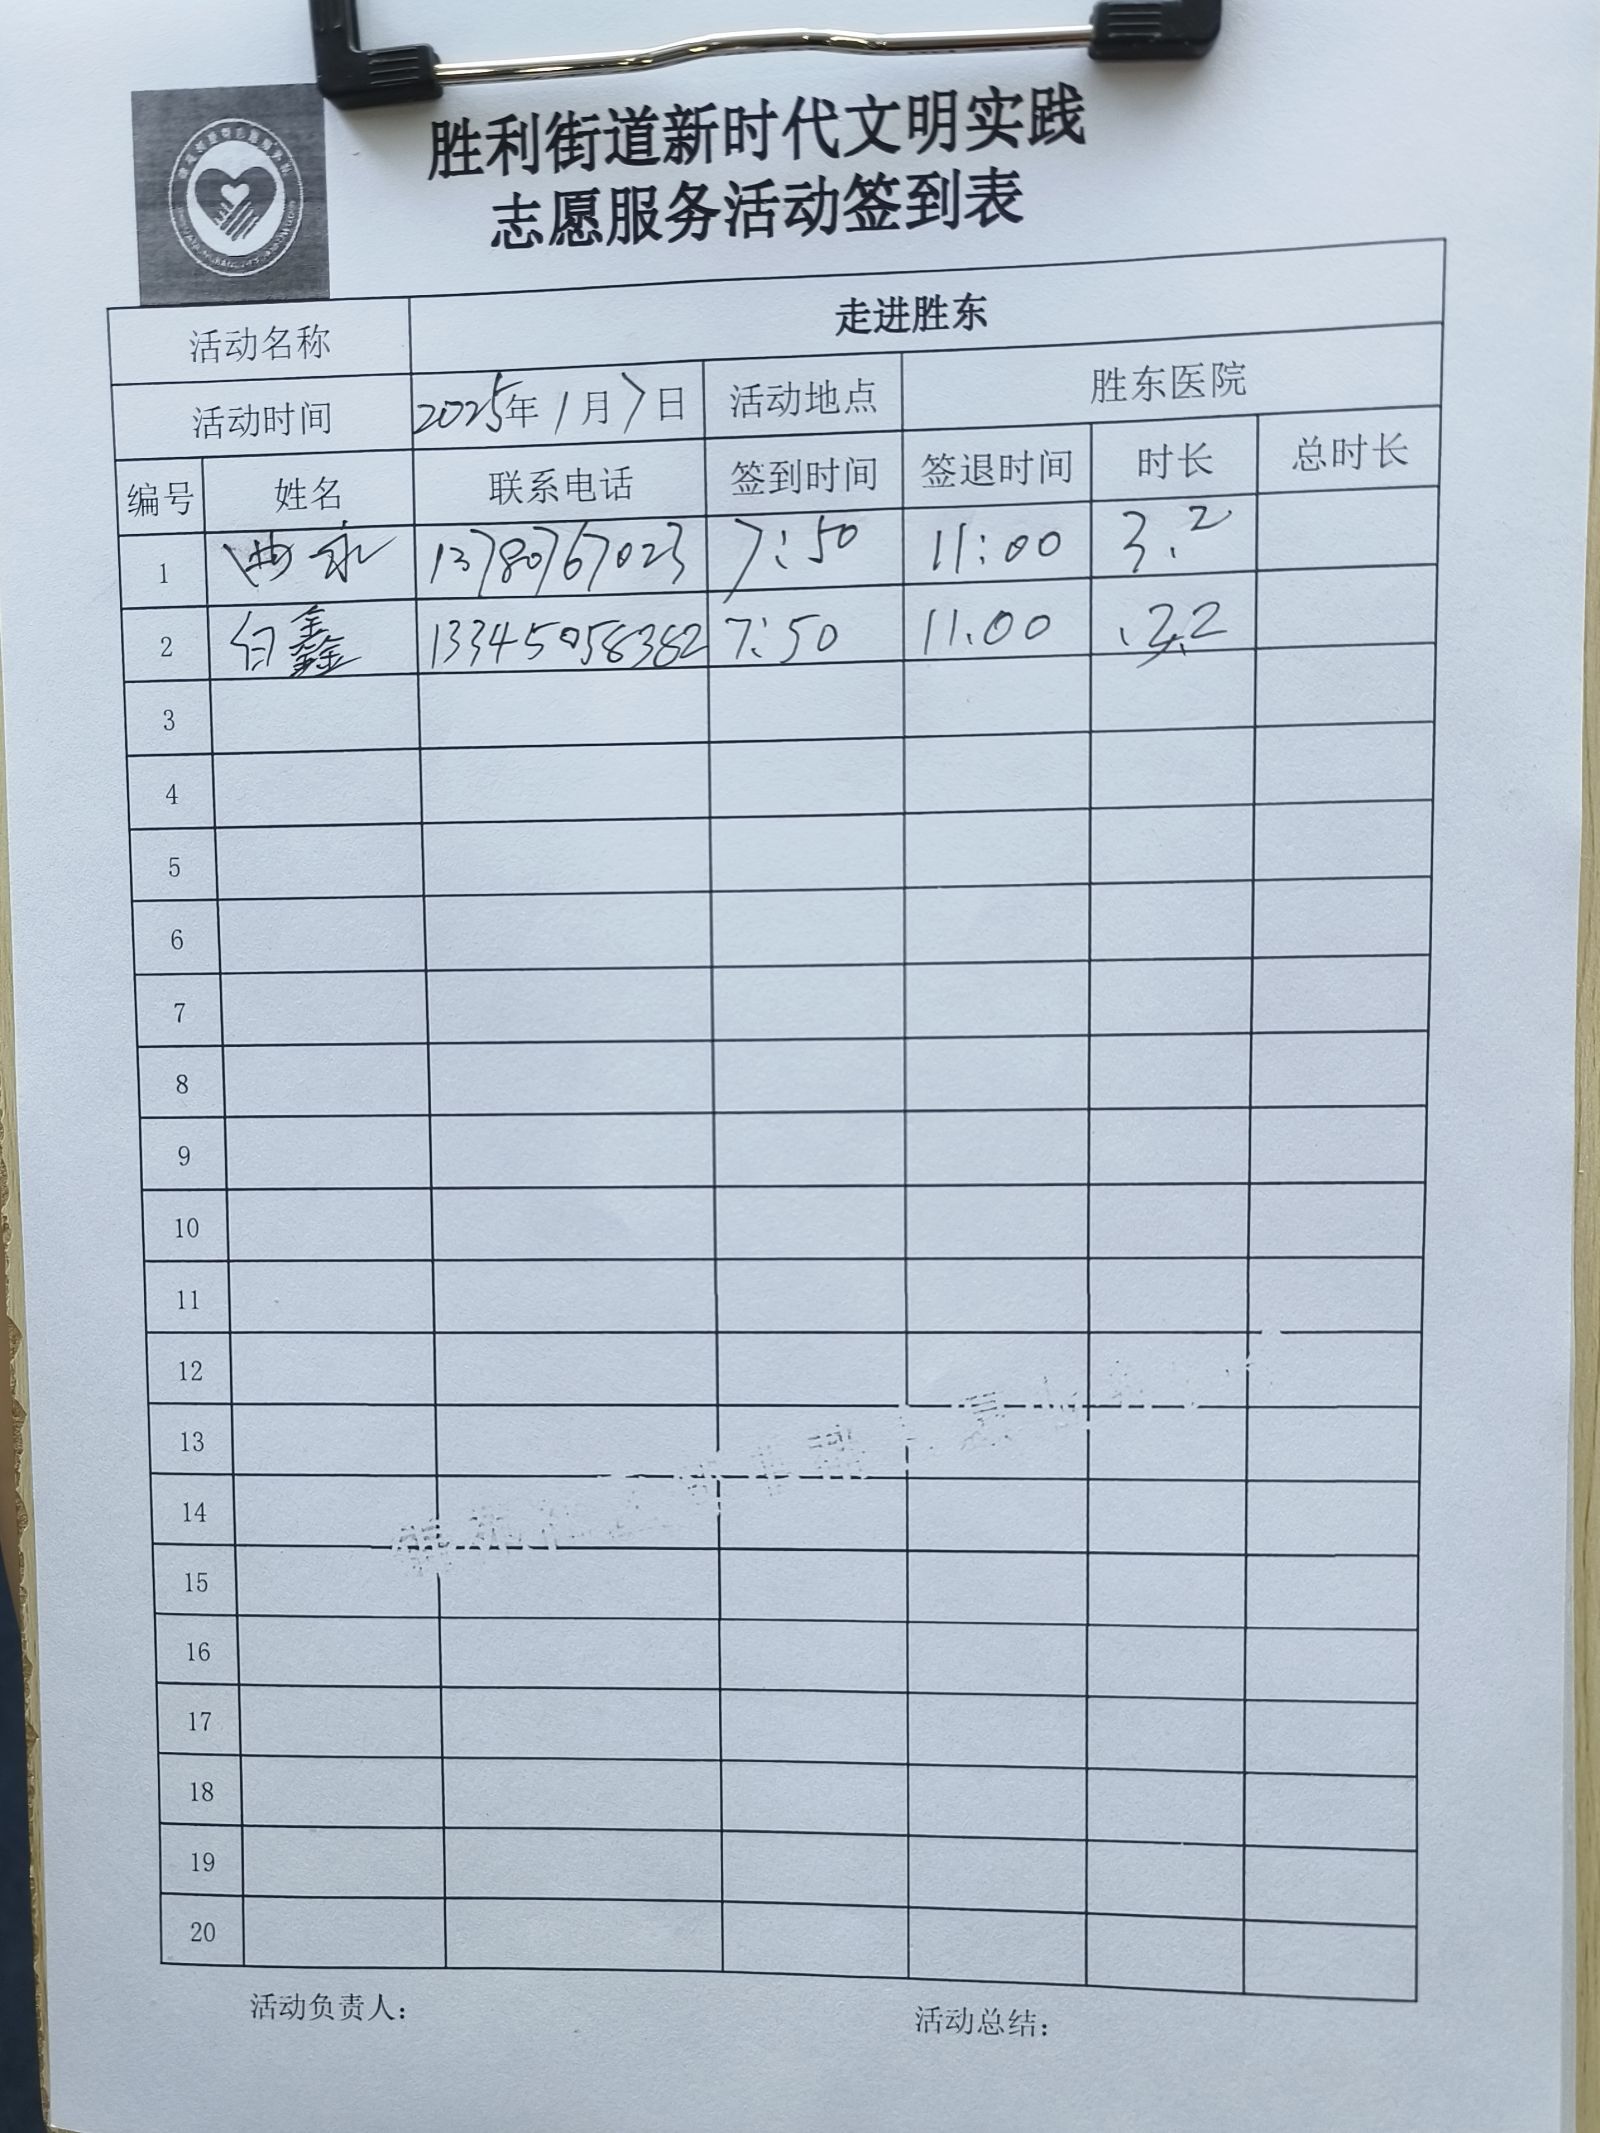 胜利街道新时代文明实践
志愿服务活动签到表
活动名称 走进胜东
活动时间 2025年1月7日 活动地点 胜东医院
编号 姓名 联系电话 签到时间 签退时间 时长 总时长
1 13780767023 7:50 11:00 3.2
2 白鑫 13345058382 7:50 11.00 3.2
3
4
5
6
7
8
9
10
11
12
13
14
15
16
17
18
19
20
活动负责人: 活动总结: